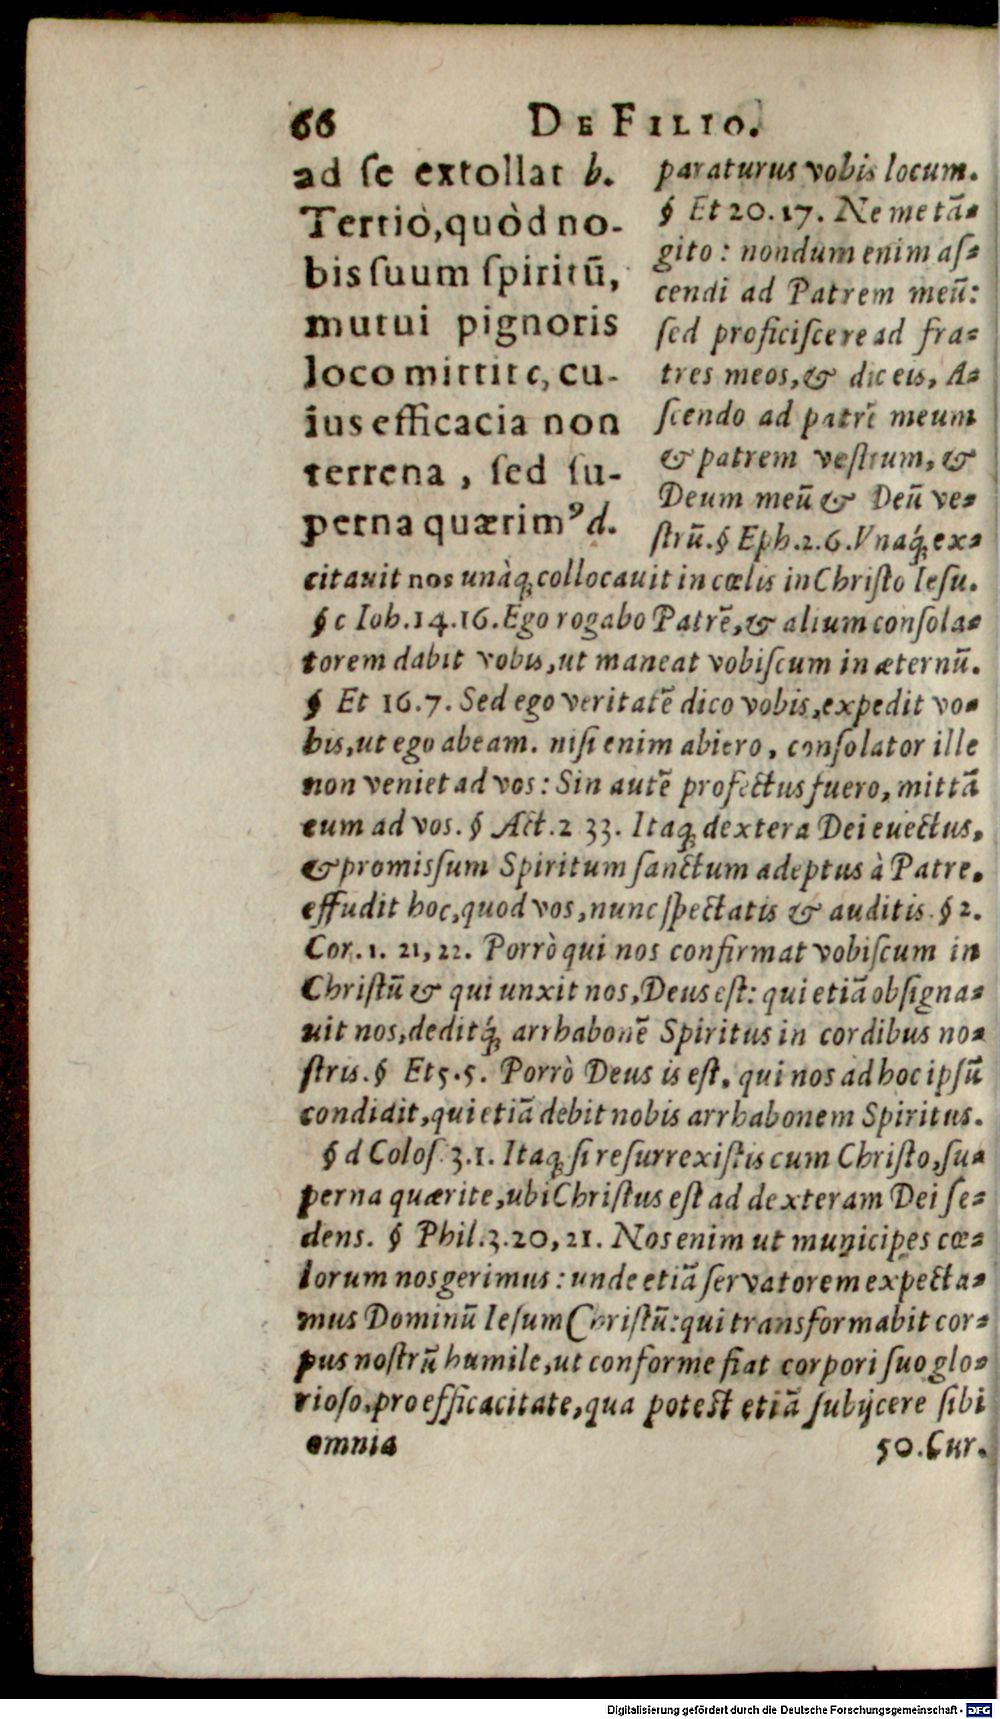 66 DE FILIO.
ad se extollat b.
Tertiò, quòd no-
bis suum spiritũ,
mutui pignoris
loco mittit c, cu-
ius efficacia non
terrena, sed su-
perna quærimꝰ d.
paraturus vobis locum.
§ Et 20. 17. Ne me tã-
gito: nondum enim as-
cendi ad Patrem meũ:
sed proficiscere ad fra-
tres meos, & dic eis, A-
scendo ad patrẽ meum
& patrem vestrum, &
Deum meũ & Deũ ve-
strũ. § Eph. 2. 6. Vnaq́; ex-
citavit nos unàq; collocavit in cœlis in Christo Iesu.
§ c Ioh. 14. 16. Ego rogabo Patrẽ, & alium consola-
torem dabit vobis, ut maneat vobiscum in æternũ.
§ Et 16. 7. Sed ego veritatẽ dico vobis, expedit vo-
bis, ut ego abeam. nisi enim abiero, consolator ille
non veniet ad vos: Sin autẽ profectus fuero, mittã
eum ad vos. § Act. 2 33. Itaq; dextera Dei evectus,
& promissum Spiritum sanctum adeptus à Patre.
effudit hoc, quod vos, nunc spectatis & auditis. § 2.
Cor. 1. 21, 22. Porrò qui nos confirmat vobiscum in
Christũ & qui unxit nos, Deus est: qui etiã obsigna-
vit nos, deditq́; arrhabonẽ Spiritus in cordibus no-
stris. § Et 5. 5. Porrò Deus is est, qui nos ad hoc ipsũ
condidit, qui etiã debit nobis arrhabonem Spiritus.
§ d Colos. 3. 1. Itaq; si resurrexistis cum Christo, su-
perna quærite, ubi Christus est ad dexteram Dei se-
dens. § Phil. 3. 20, 21. Nos enim ut municipes cœ-
lorum nos gerimus: unde etiã servatorem expecta-
mus Dominũ Iesum Christũ: qui transformabit cor-
pus nostrũ humile, ut conforme fiat corpori suo glo-
rioso, pro efficacitate, qua potest etiã subijcere sibi
omnia 50. Cur.
Digitalisierung gefördert durch die Deutsche Forschungsgemeinschaft - DFG